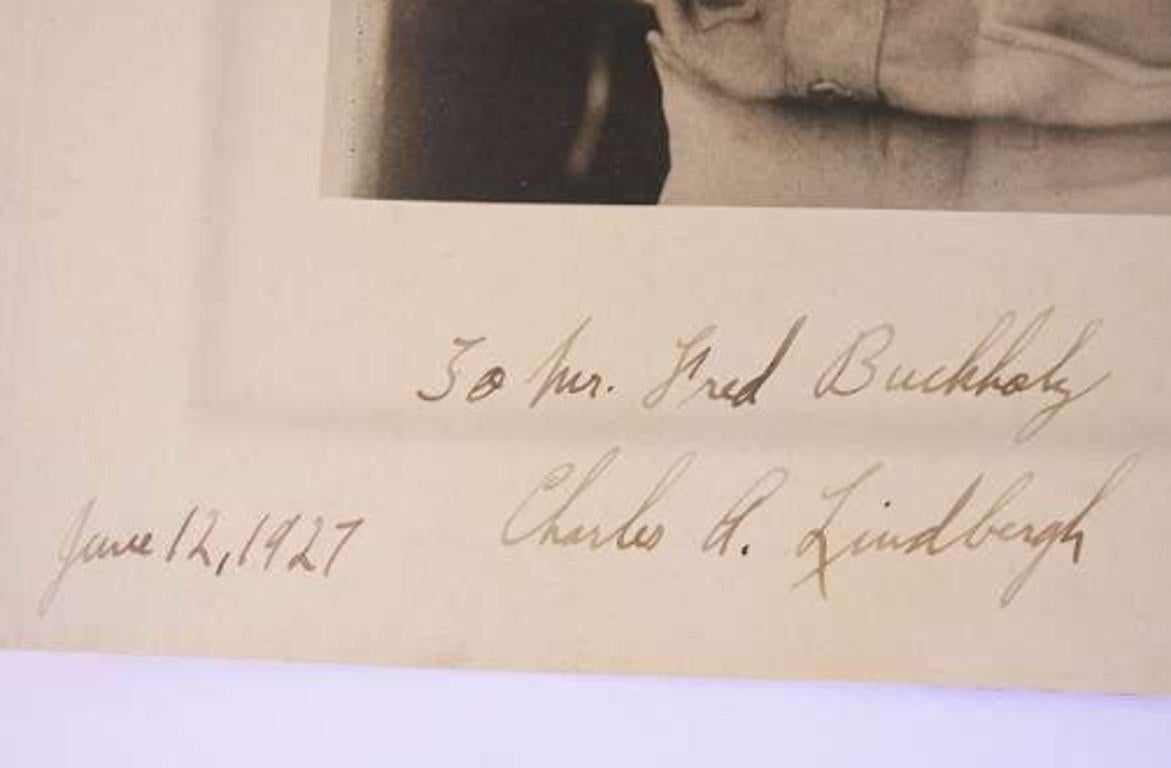 To Mr. Fred Buckholz
Charles A. Lindbergh
June 12, 1927